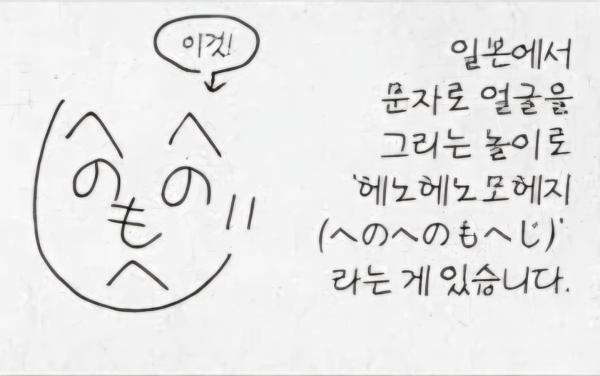 이것!
へ へ
の の
も
へ
じ
일본에서
문자로 얼굴을
그리는 놀이로
'헤노헤노모헤지
(へのへのもへじ)'
라는 게 있습니다.